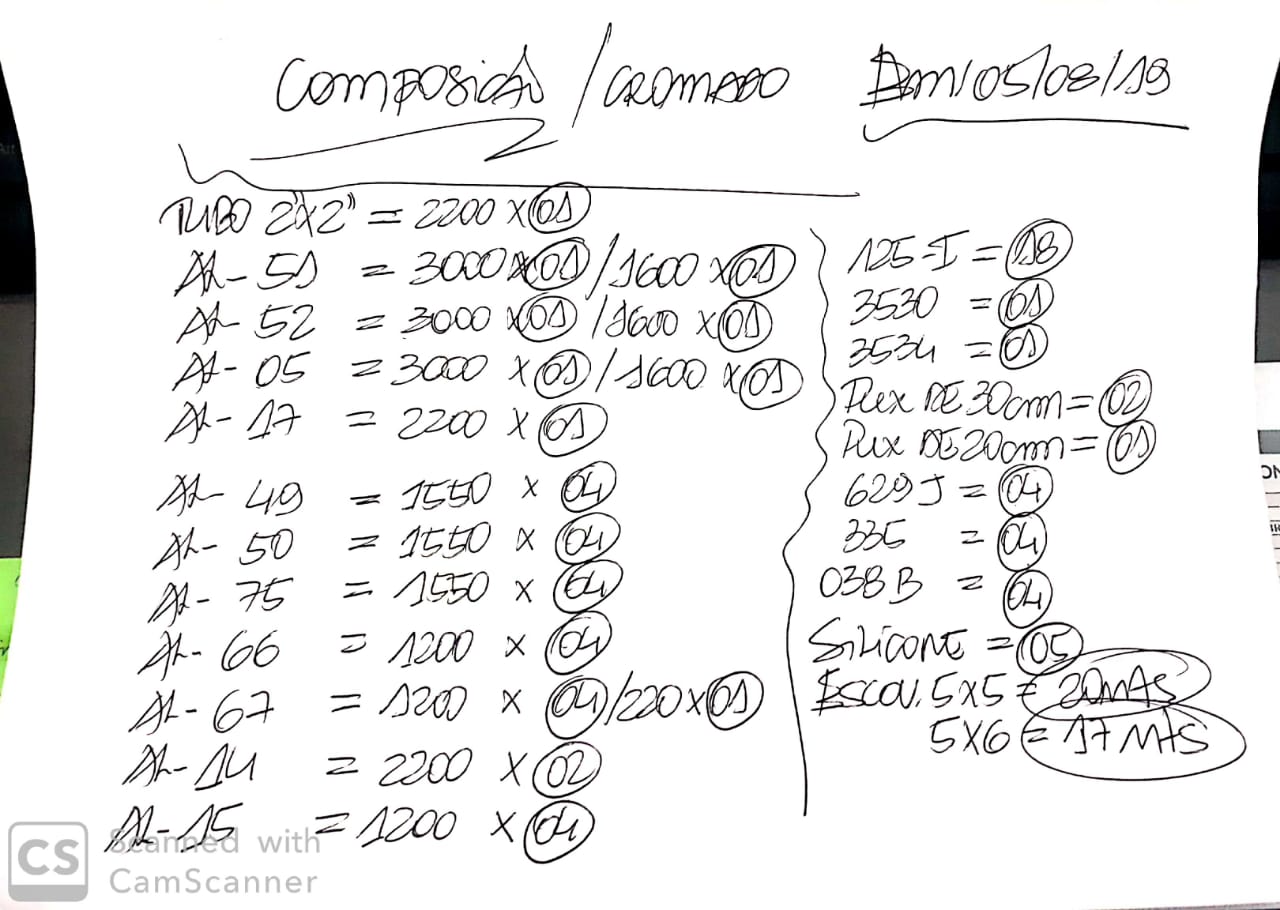 Composição / CROMADO Em/05/08/19
TUBO 2"x2" = 2200 x 01
AL- 51 = 3000 x 01 / 1600 x 01
AL- 52 = 3000 x 01 / 1600 x 01
AL- 05 = 3000 x 01 / 1600 x 01
AL- 17 = 2200 x 01
AL- 49 = 1550 x 04
AL- 50 = 1550 x 04
AL- 75 = 1550 x 04
AL- 66 = 1200 x 04
AL- 67 = 1200 x 04 / 220 x 01
AL- 14 = 2200 x 02
AL- 15 = 1200 x 04
125-I = 18
3530 = 01
3534 = 01
DE 30cm = 02
DE 20cm = 01
629 J = 04
335 = 04
038 B = 04
SiLiCONE = 05
ESCOV. 5x5 = 20mts
5x6 = 17 Mts
CS Scanned with
CamScanner